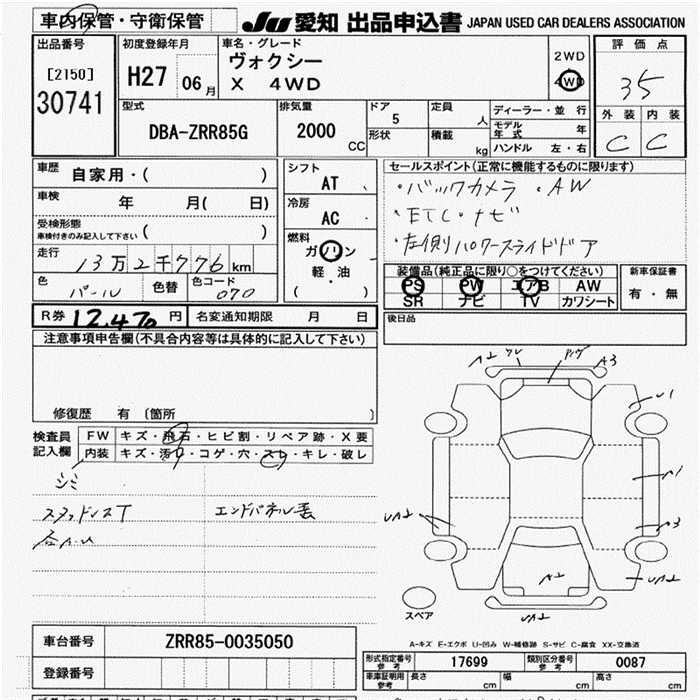 車内保管・守衛保管
JU 愛知 出品申込書 JAPAN USED CAR DEALERS ASSOCIATION
出品番号
[2150]
30741
初度登録年月
H27 06月
車名・グレード
ヴォクシー
X 4WD
2WD
4WD
評価点
35
外装 内装
C C
型式
DBA-ZRR85G
排気量
2000 CC
ドア
5
形状
定員
人
積載
kg
ディーラー・並行
モデル年式 年
ハンドル 左・右
車歴
自家用・( )
車検
年 月( 日)
受検形態
車検付きのみ記入して下さい ( )
走行
13万2千776km
色
パール
色替
色コード
070
シフト
AT
冷房
AC
燃料
ガソリン
軽・油
( )
セールスポイント(正常に機能するものに限ります)
・バックカメラ ・AW
・ETC・ナビ
・左側パワースライドドア
装備品(純正品に限り○をつけてください)
PS PW エアB AW
SR ナビ TV カワシート
新車保証書
有・無
R券 12,470円
名変通知期限 月 日
後日品
注意事項申告欄(不具合内容等は具体的に記入して下さい)
修復歴 有 〔箇所 〕
検査員
記入欄
FW キズ・飛石・ヒビ割・リペア跡・X要
内装 キズ・汚れ・コゲ・穴・スレ・キレ・破レ
シミ
スタッドレスT
エンドパネル
A2 A3
U1
A1
A3
UA2
UA2
A2
UA2
スペア
A-キズ E-エクボ U-凹み W-補修跡 S-サビ C-腐食 XX-交換済
車台番号
ZRR85-0035050
登録番号
形式指定番号
参考
17699
類別区分番号
参考
0087
車庫証明用
参考
長さ cm
幅 cm
高さ cm